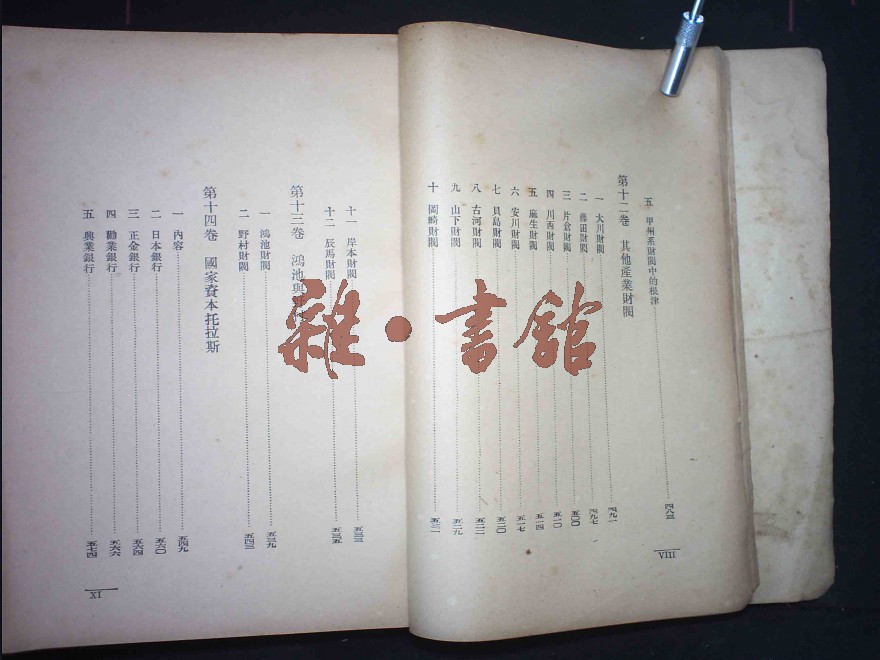 五 甲州系財閥中的根津 四八三
第十二卷 其他產業財閥
一 大川財閥 四九一
二 藤田財閥 四九七
三 片倉財閥 五〇〇
四 川西財閥 五一〇
五 麻生財閥 五一四
六 安川財閥 五一七
七 貝島財閥 五二〇
八 古河財閥 五二二
九 山下財閥 五二九
十 岡崎財閥 五三一
VIII
十一 岸本財閥 五三三
十二 辰馬財閥 五三五
第十三卷 鴻池與
一 鴻池財閥 五三九
二 野村財閥 五四三
第十四卷 國家資本托拉斯
一 內容 五四九
二 日本銀行 五六〇
三 正金銀行 五六四
四 勸業銀行 五六六
五 興業銀行 五七四
XI
雜•書館